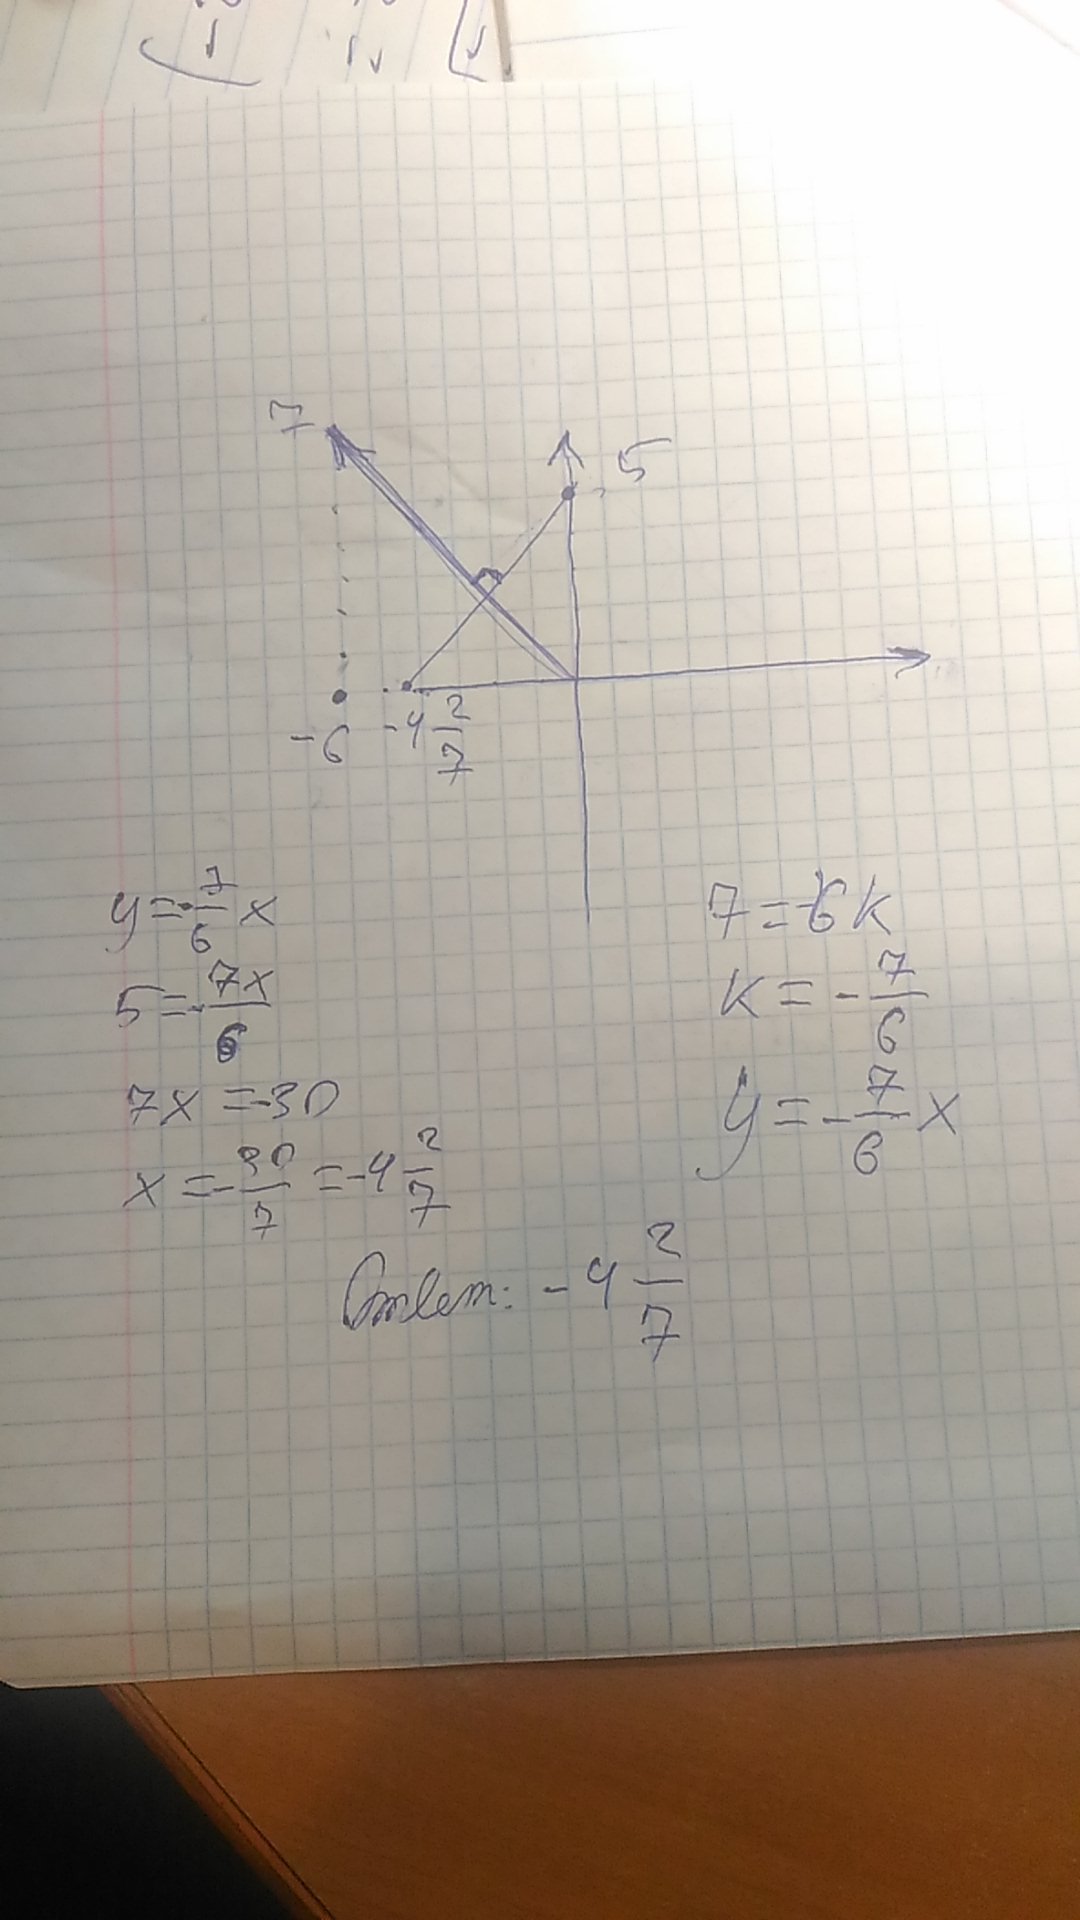 7
5
-6
-4 2/7
y = -7/6 x
5 = -7x/6
7x = -30
x = -30/7 = -4 2/7
7 = -6k
k = -7/6
y = -7/6 x
Ответ: -4 2/7